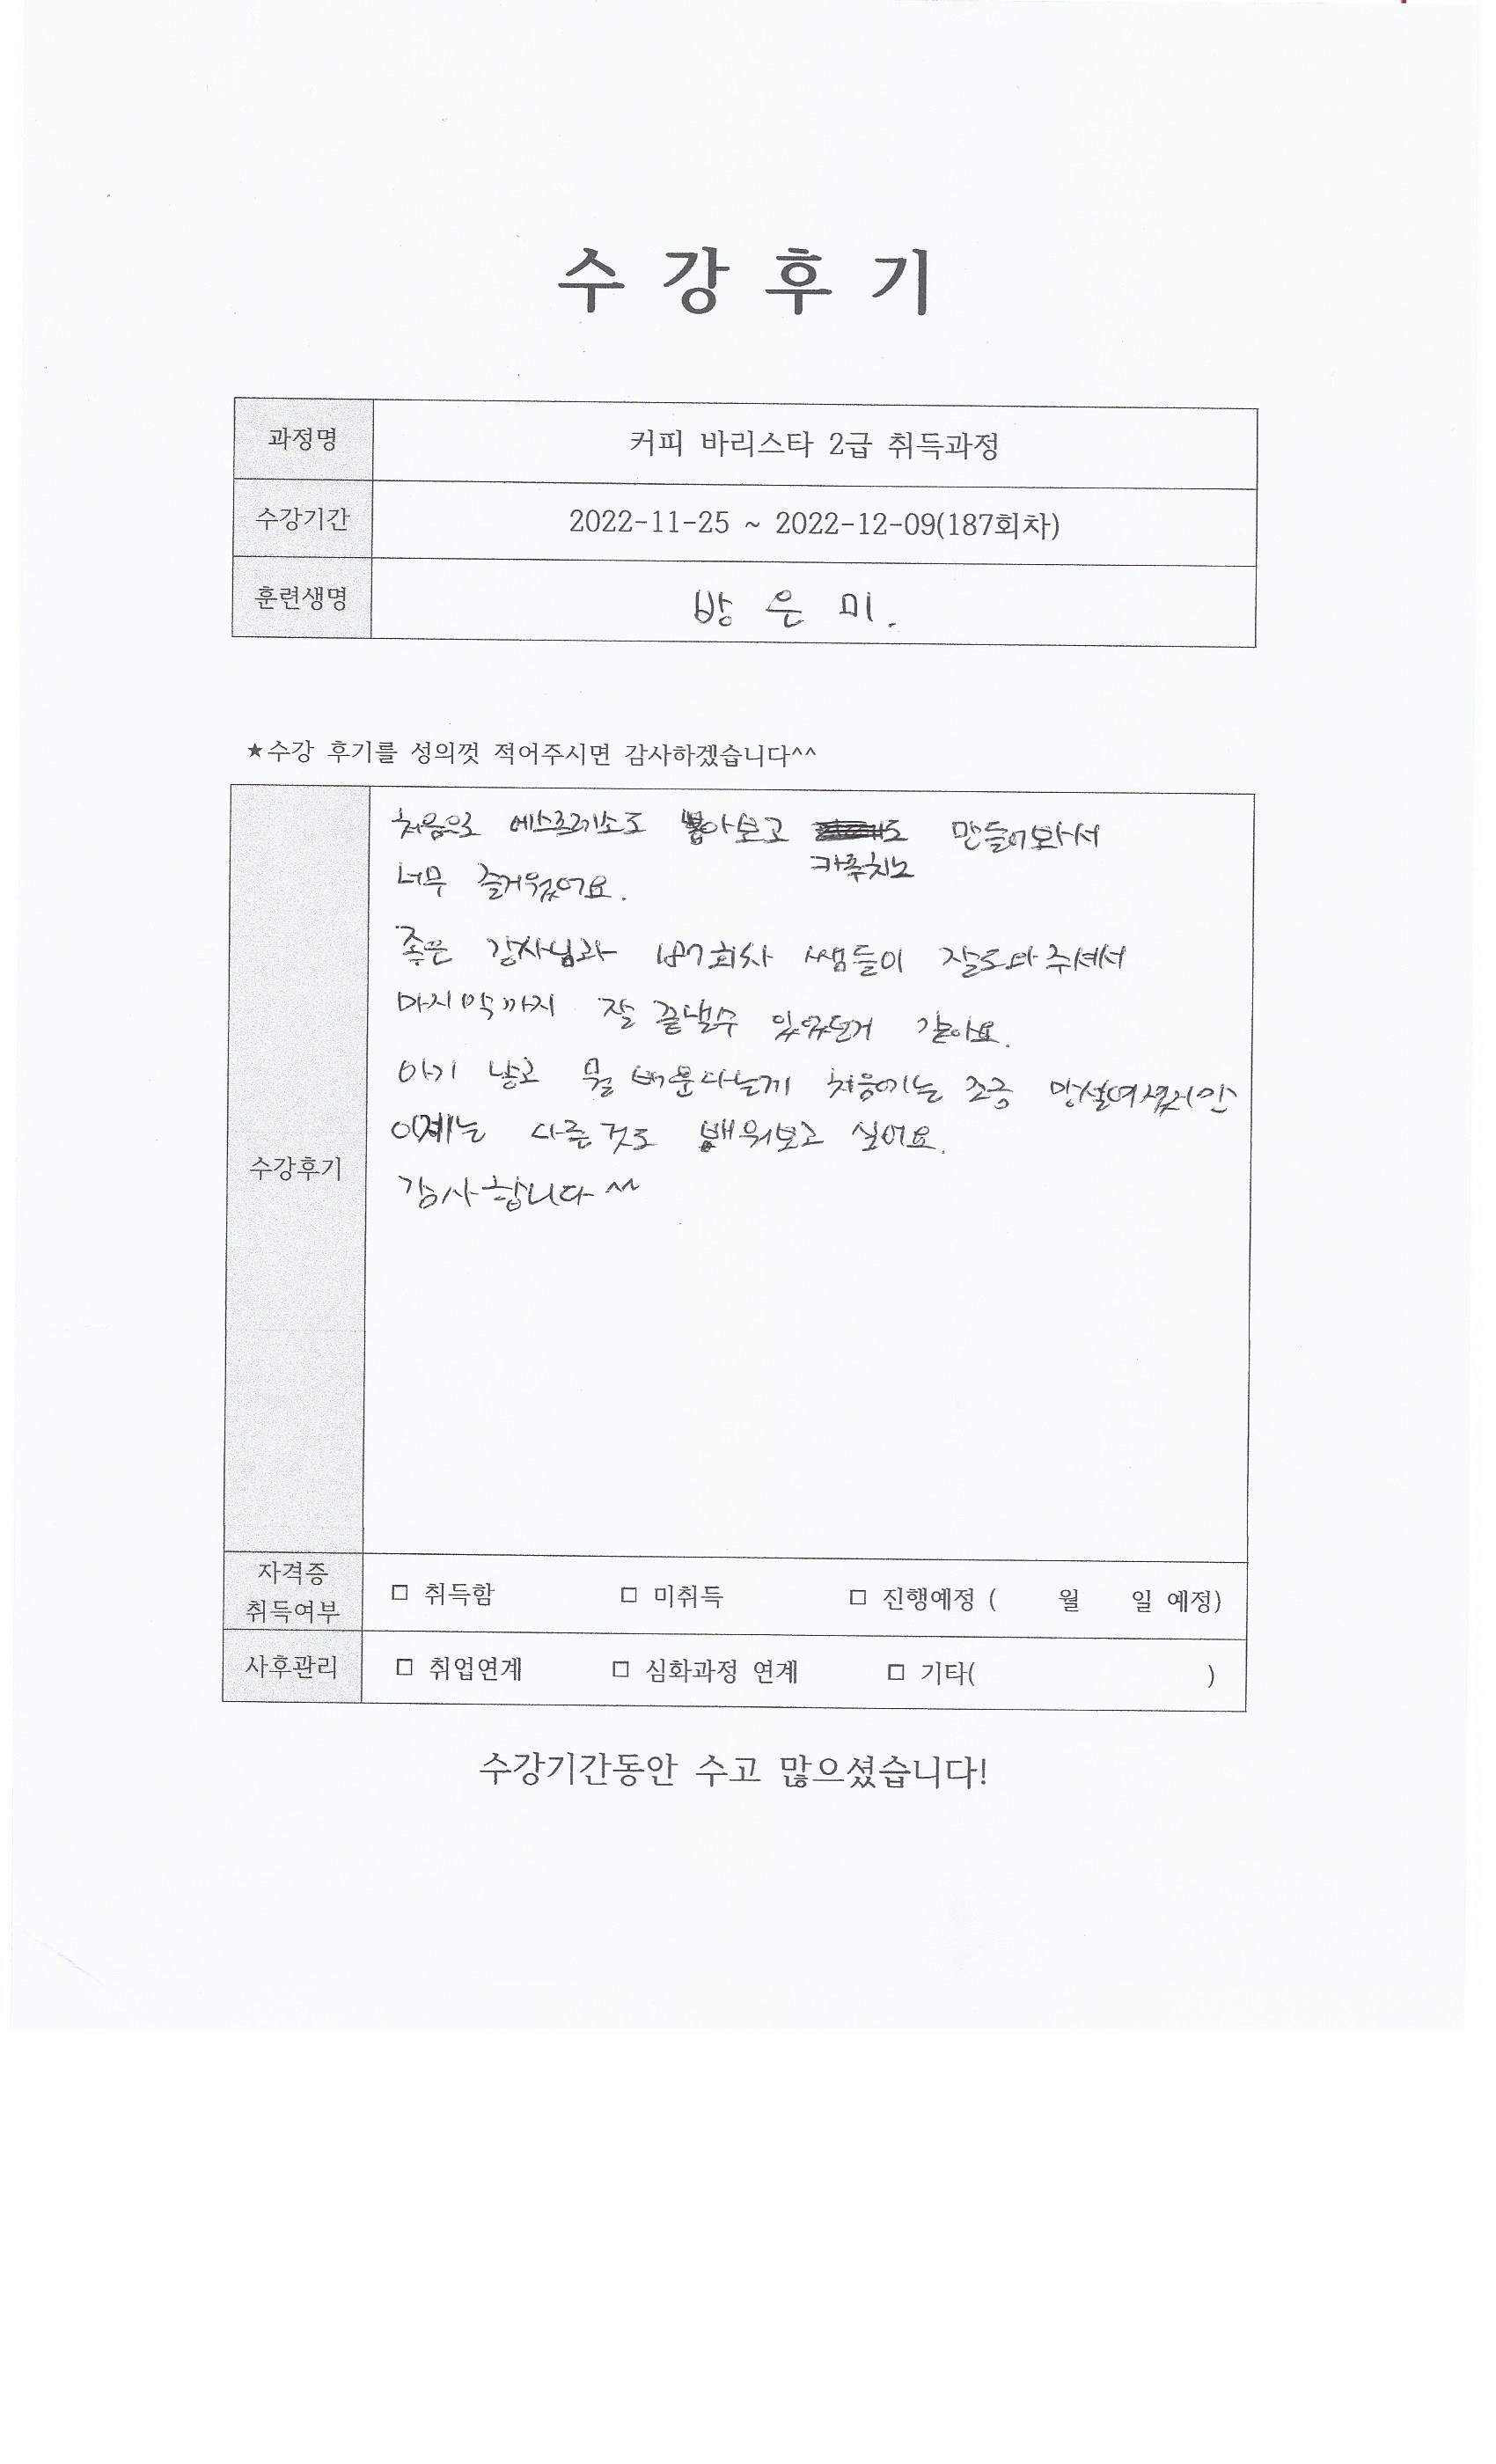 수 강 후 기
과정명 커피 바리스타 2급 취득과정
수강기간 2022-11-25 ~ 2022-12-09(187회차)
훈련생명 방 은 미.
★수강 후기를 성의껏 적어주시면 감사하겠습니다^^
처음으로 에스프레소도 뽑아보고 도 만들어봐서
카푸치노
너무 즐거웠어요.
좋은 강사님과 187회차 쌤들이 잘도와주셔서
마지막까지 잘 끝낼수 있었던거 같아요.
아기 낳고 뭘 배운다는게 처음에는 조금 망설여졌지만
이제는 다른것도 배워보고 싶어요.
감사합니다^^
수강후기
자격증 취득여부 □ 취득함 □ 미취득 □ 진행예정 ( 월 일 예정)
사후관리 □ 취업연계 □ 심화과정 연계 □ 기타( )
수강기간동안 수고 많으셨습니다!